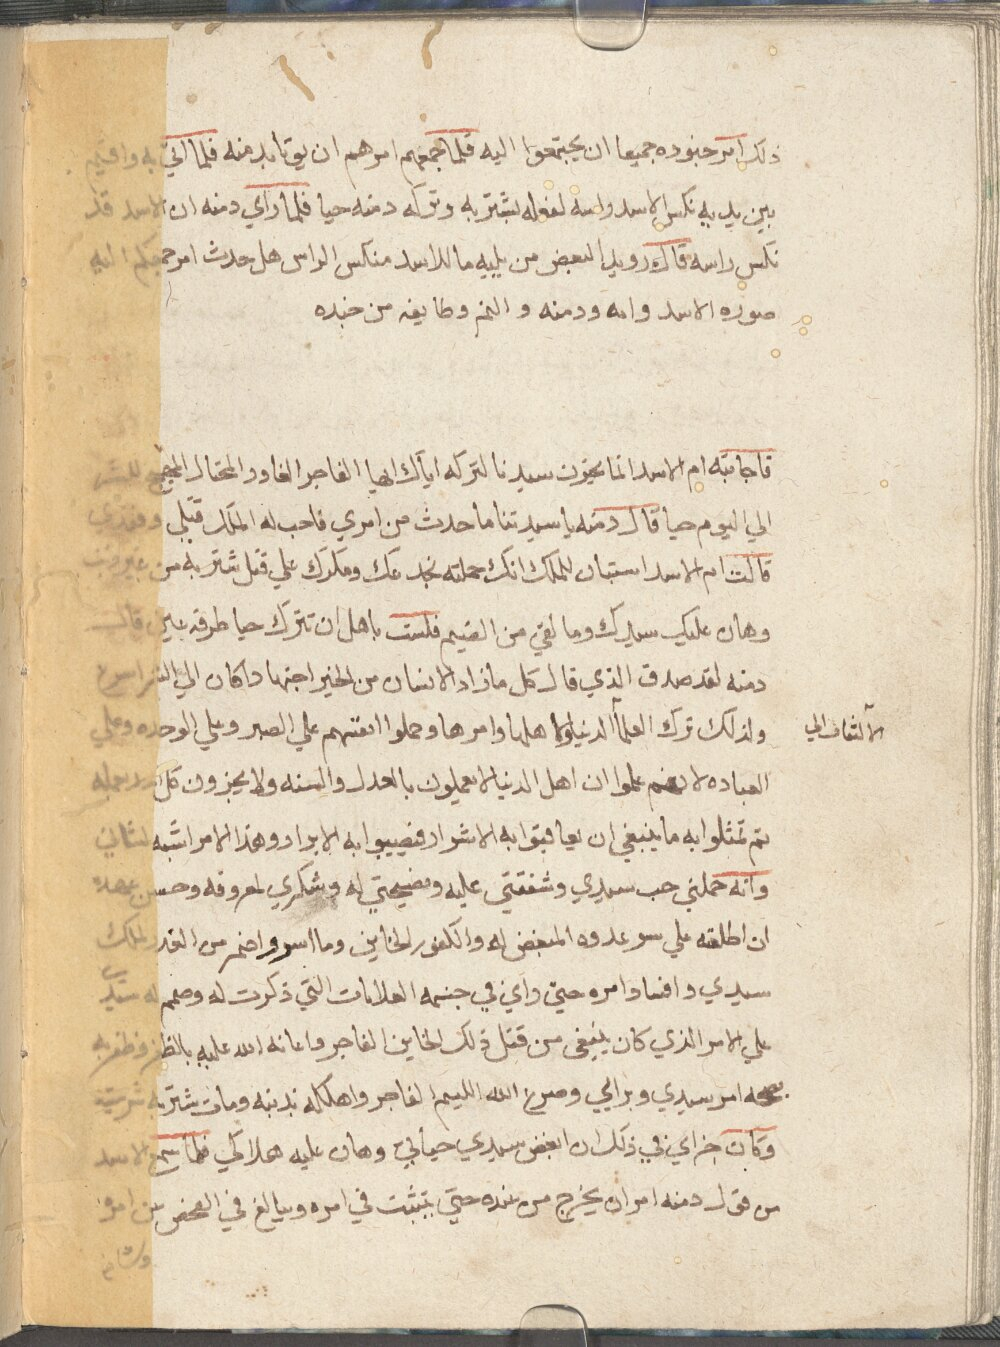 ذلك امر جنوده جميعا ان يجتمعوا اليه فلما جمعهم امرهم ان يوتا بدمنه فلما اتي به واقيم
بين يديه نكس الاسد راسه لفعله بشتربه وتركه دمنه حيا فلما راي دمنه ان الاسد قد
نكس راسه قال رويدا لبعض من يليه ما للاسد منكس الراس هل حدث امر جمعكم اليه
صوره الاسد وامه ودمنه و النمر وطايفه من جنده
فاجابته ام الاسد انما يحزن سيدنا لتركه اياك ايها الفاجر الغادر المحتال
الي اليوم حيا قال دمنه يا سيدتنا ما حدث من امري فاحب له الملك قتلي
قالت ام الاسد استبان للملك انك حملته بخدعك ومكرك علي قتل شتربه من غير ذنب
وهان عليك سيدك وما لقي من الضيم فلست باهل ان تترك حيا طرفه عين قال
دمنه لقد صدق الذي قال كل ما زاد الانسان من الخير اجتهادا كان الي الشر اسرع
ولذلك ترك العلما الدنيا لاهلها وامرها وحملوا انفسهم علي الصبر وعلي الوحده وعلي
الالتفات الي
العباده لانهم علموا ان اهل الدنيا لا يعملون بالعدل والسنه ولا يجزون كل بعمله
ثم تمثلوا به ما ينبغي ان يعاقبوا به الاشرار فيصيبوا به الابرار وهذا الامر اشبه لشاني
وانه حملني حب سيدي وشفقتي عليه ونصيحتي له وشكري لمعروفه وحسن عهده
ان اطلعته علي سو عدوه المبغض له والكفور الخاين وما اسر واضمر من الغدر للملك
سيدي وافساد امره حتي راي في جسمه العلامات التي ذكرت له وصمم له سيدي
علي الامر الذي كان ينبغي من قتل ذلك الخاين الفاجر واعانه الله عليه بالظفر وظفر به
امر سيدي وبرايي وصرع الله الليم الفاجر واهلكه بذنبه ومات شتربه شر ميتة
وكان جزاي في ذلك ان ابغض سيدي حياتي وهان عليه هلاكي فلما سمع الاسد
من قول دمنه امر ان يخرج من عنده حتي يتثبت في امره ويبالغ في الفحص من امره